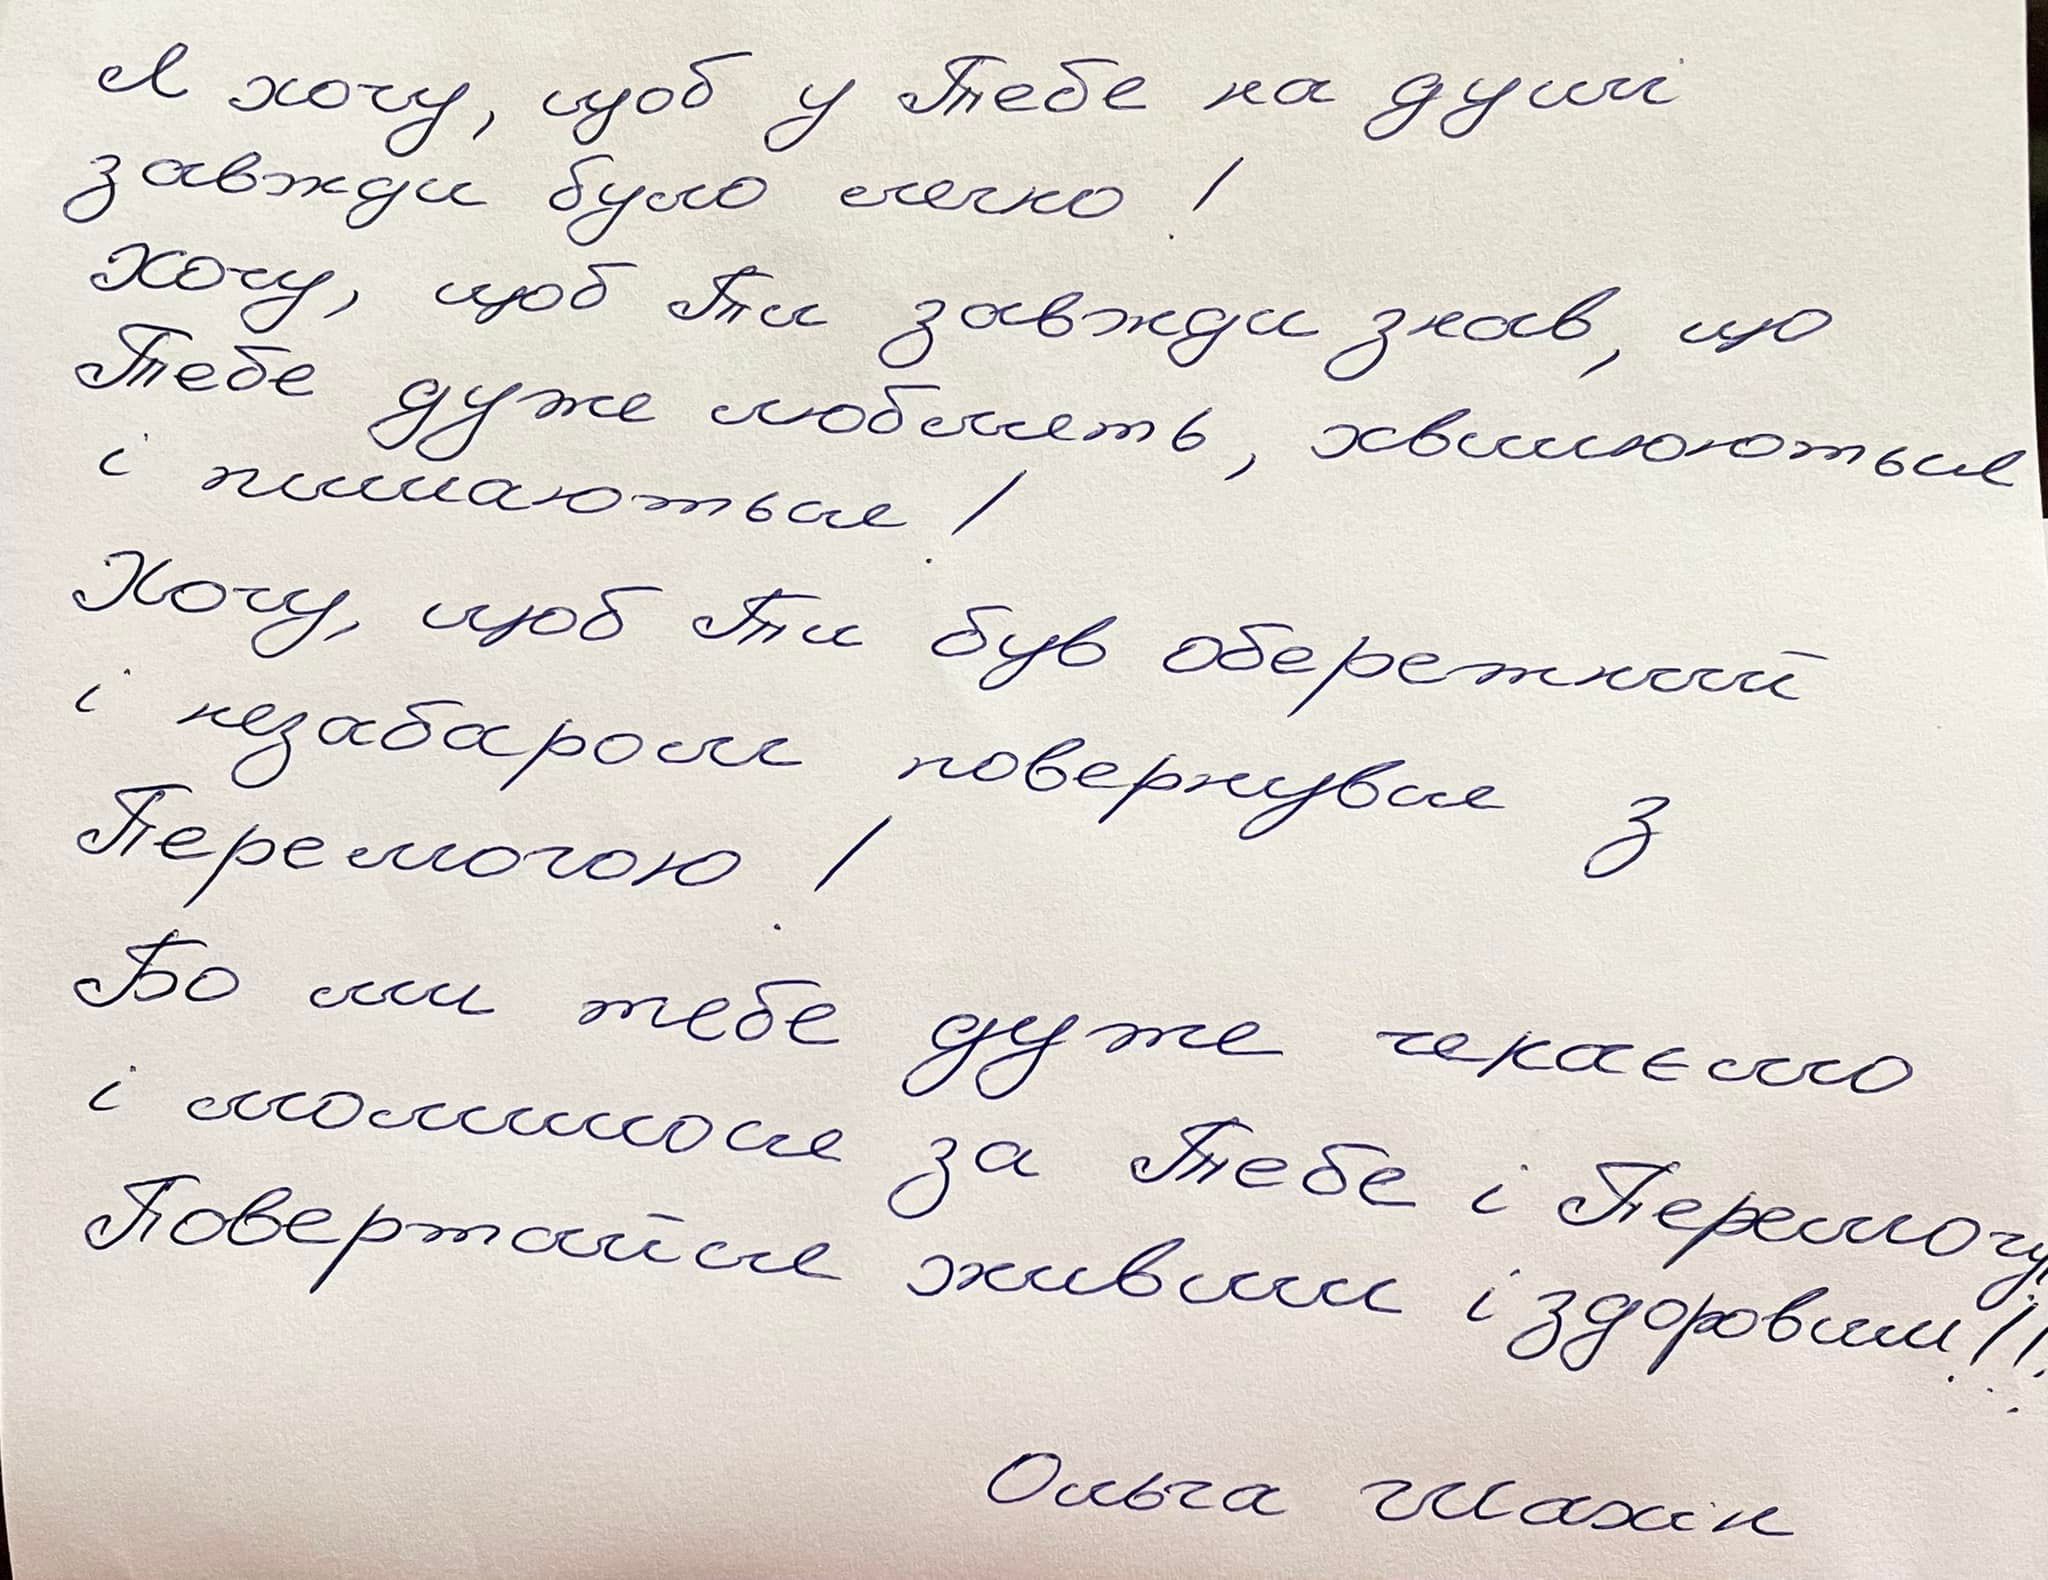 Я хочу, щоб у Тебе на душі
завжди було легко!
Хочу, щоб Ти завжди знав, що
Тебе дуже люблять, хвилюються
і пишаються!
Хочу, щоб Ти був обережний
і незабаром повернувся з
Перемогою!
Бо ми тебе дуже чекаємо
і молимося за Тебе і Перемогу!
Повертайся живим і здоровим!!!
Ольга Шахін